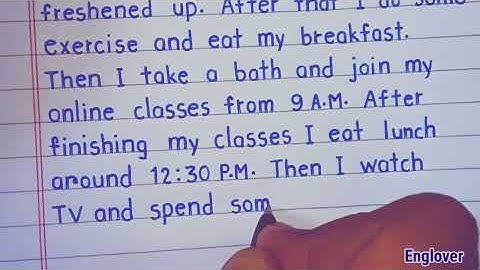 freshened up. After that I do some
exercise and eat my breakfast.
Then I take a bath and join my
online classes from 9 A.M. After
finishing my classes I eat lunch
around 12:30 P.M. Then I watch
TV and spend som
Englover